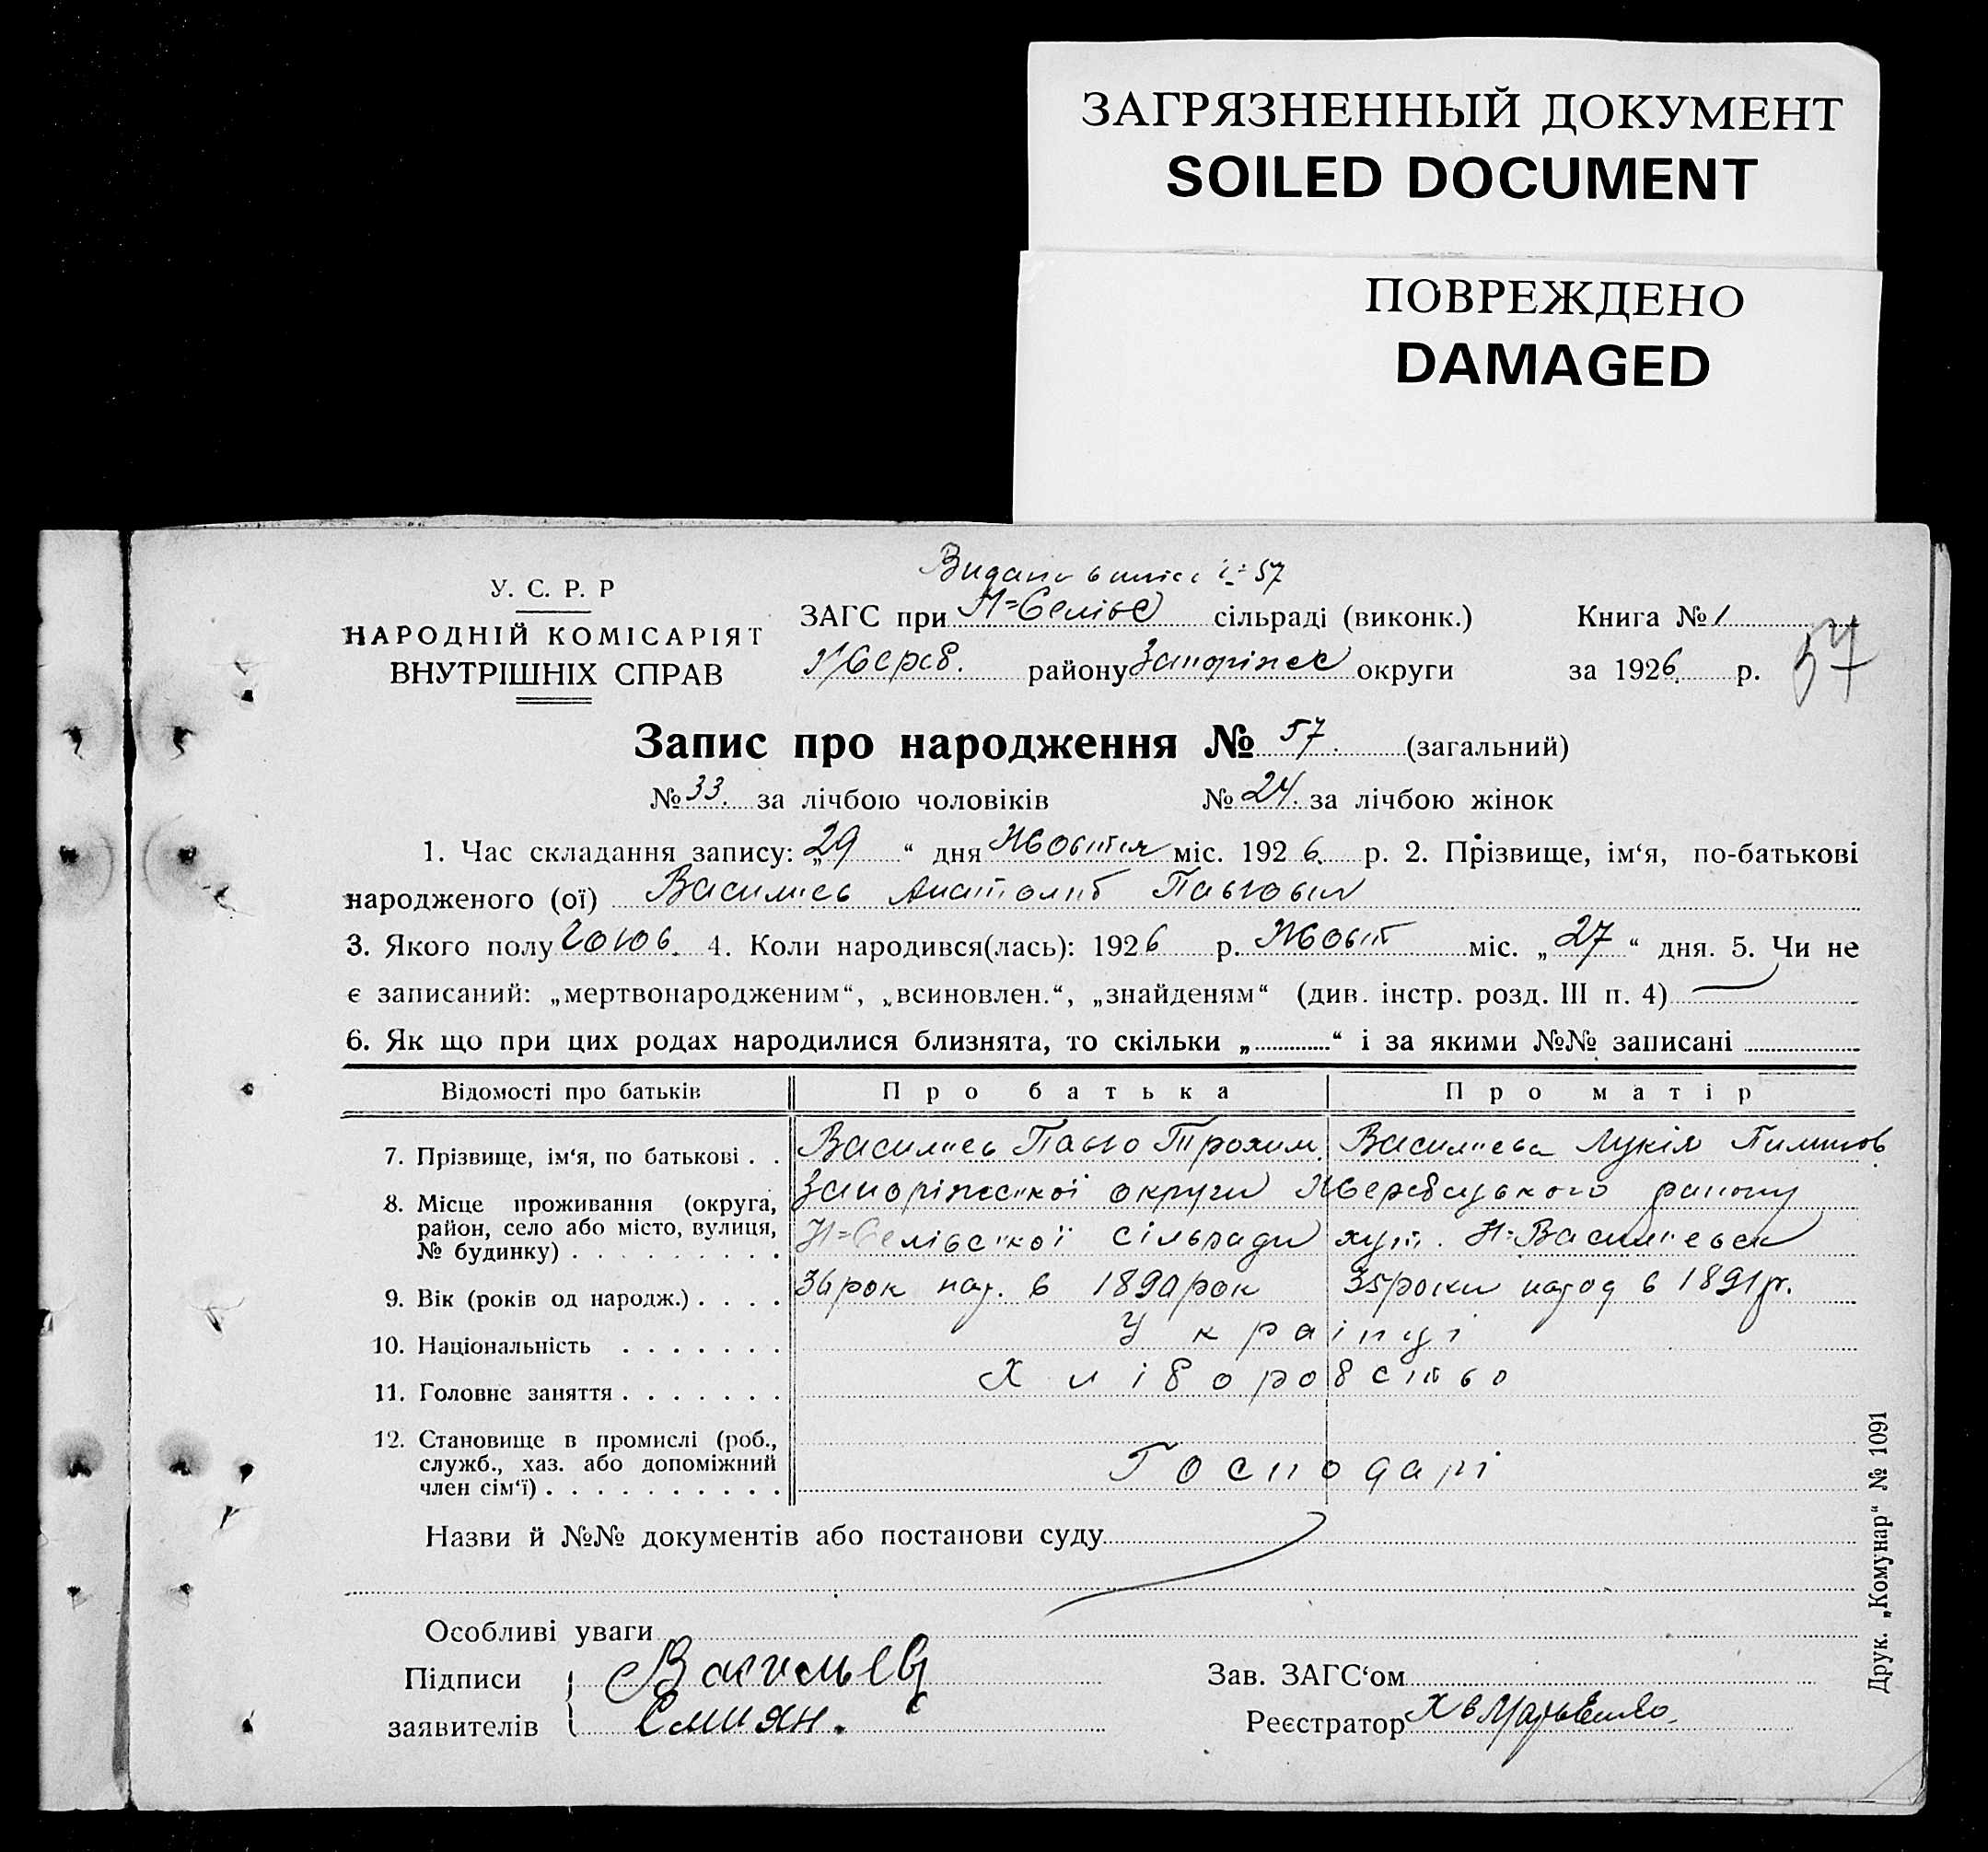 ЗАГРЯЗНЕННЫЙ ДОКУМЕНТ
SOILED DOCUMENT
ПОВРЕЖДЕНО
DAMAGED
№ 57
У. С. Р. Р
НАРОДНІЙ КОМІСАРІЯТ
ВНУТРІШНІХ СПРАВ
ЗАГС при сільраді (виконк.) Книга № 1
району округи за 1926 р. 57
Запис про народження № 57. (загальний)
№ 33. за лічбою чоловіків № 24. за лічбою жінок
1. Час складання запису: „29“ дня Жовтня міс. 1926. р. 2. Прізвище, ім‘я, по-батькові
народженого (ої) Анатолій Павлович
3. Якого полу Чолов. 4. Коли народився(лась): 1926 р. Жовт міс. „27“ дня. 5. Чи не
є записаний: „мертвонародженим“, „всиновлен.“, „знайденям“ (див. інстр. розд. III п. 4)
6. Як що при цих родах народилися близнята, то скільки „............“ і за якими №№ записані
Відомості про батьків Про батька Про матір
7. Прізвище, ім‘я, по батькові . . Павло Трохим Лукія
8. Місце проживання (округа, район, село або місто, вулиця, № будинку) . . . . . . . . . округи району
сільради хут.
9. Вік (років од народж.) . . . . 36 рок нар. в 1890 рок 35 роки народ в 1891 р.
10. Національність . . . . . . . Українці
11. Головне заняття . . . . . . . Хліборобство
12. Становище в промислі (роб., служб., хаз. або допоміжний член сім‘ї) . . . . . . . . . . Господарі
Назви й №№ документів або постанови суду
Особливі уваги
Підписи заявителів
Зав. ЗАГС‘ом
Реєстратор
Друк. „Комунар“ № 1091